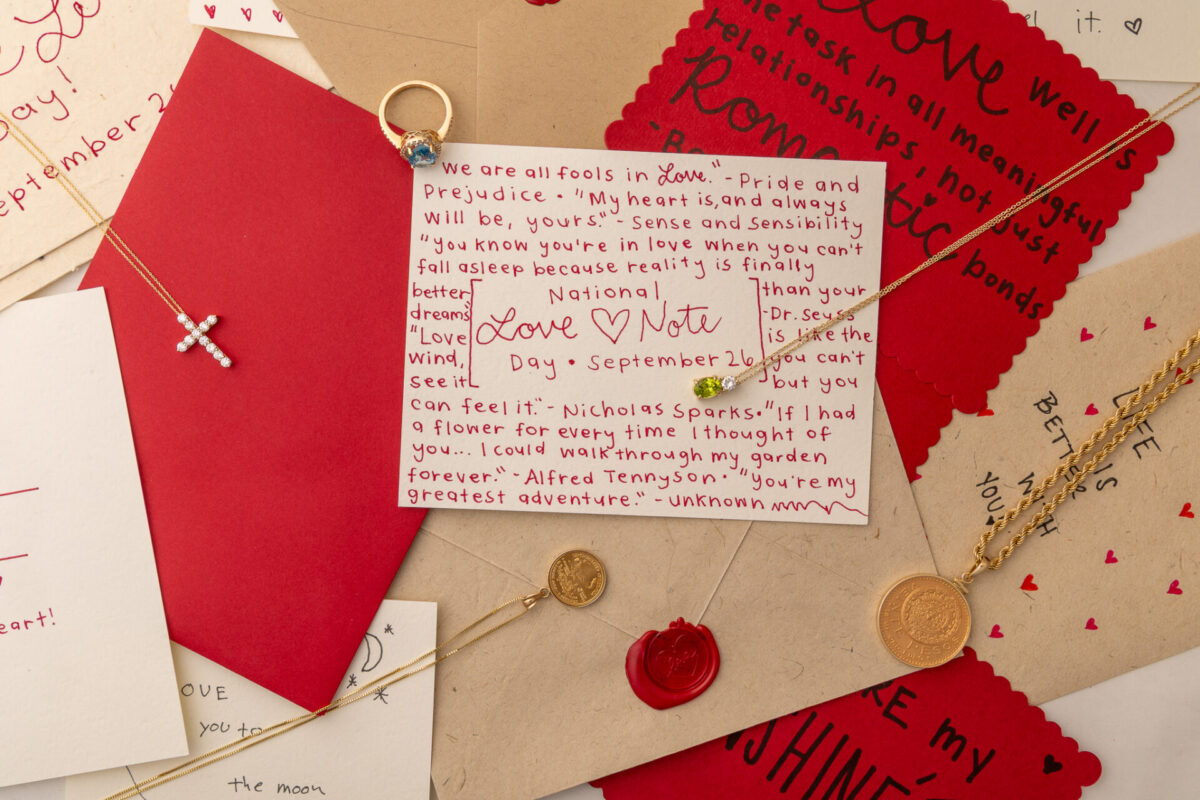 Day!
September 26
"we are all fools in Love." - Pride and
Prejudice • "My heart is, and always
will be, yours." - Sense and Sensibility
"you know you're in love when you can't
fall asleep because reality is finally
better than your
dreams" - Dr. Seuss
"Love is like the
wind, you can't
see it but you
National
Love ♡ Note
Day • September 26
can feel it." - Nicholas Sparks • "If I had
a flower for every time I thought of
you... I could walk through my garden
forever." - Alfred Tennyson • "you're my
greatest adventure." - unknown
Love well is
the task in all meaningful
relationships, not just
Romantic bonds
it. ♡
LIFE
IS
BETTER
WITH
YOU!
eart!
OVE
you to
the moon
RE my